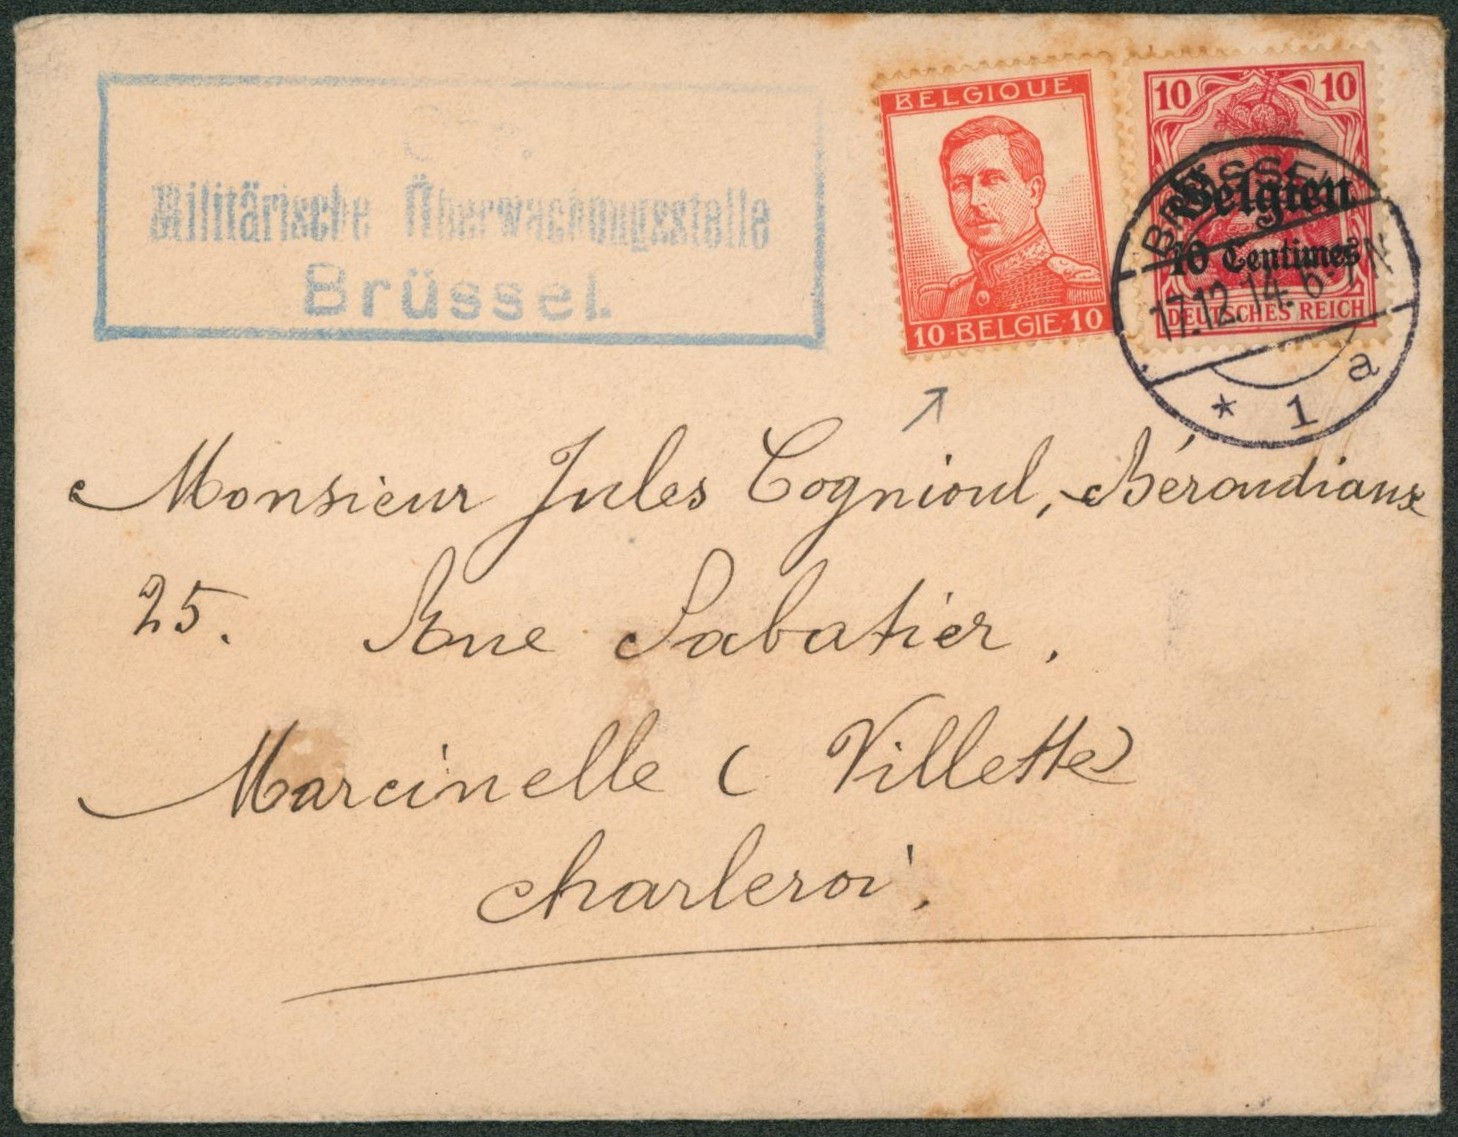 Militärische Überwachungsstelle
Brüssel.
BELGIQUE
10 BELGIE 10
10 10
Belgien
10 Centimes
DEUTSCHES REICH
BRÜSSEL
17.12.14. 6-7 N
* 1 a
Monsieur Jules Cognioul,
25. Rue Sabatier,
Marcinelle (Villette)
Charleroi,